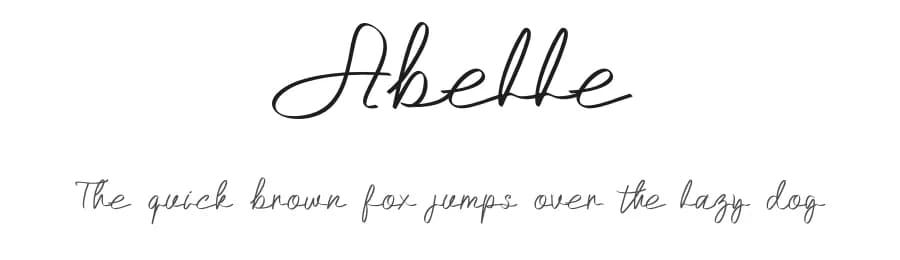 Abelle
The quick brown fox jumps over the lazy dog